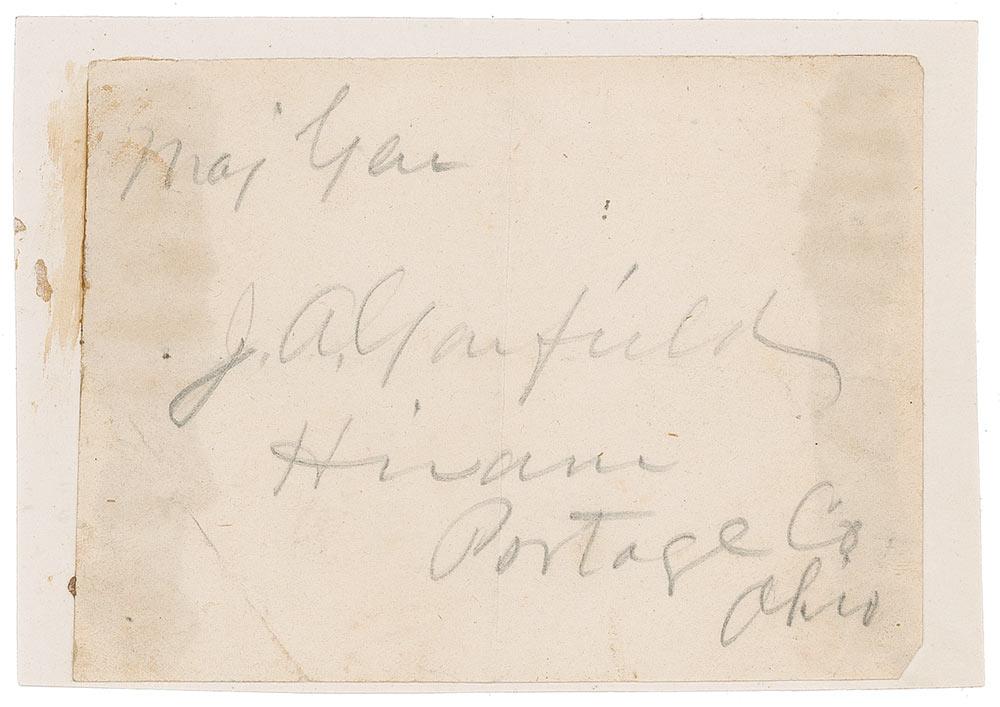 Maj Gen
J. A. Garfield
Hiram
Portage Co.
Ohio